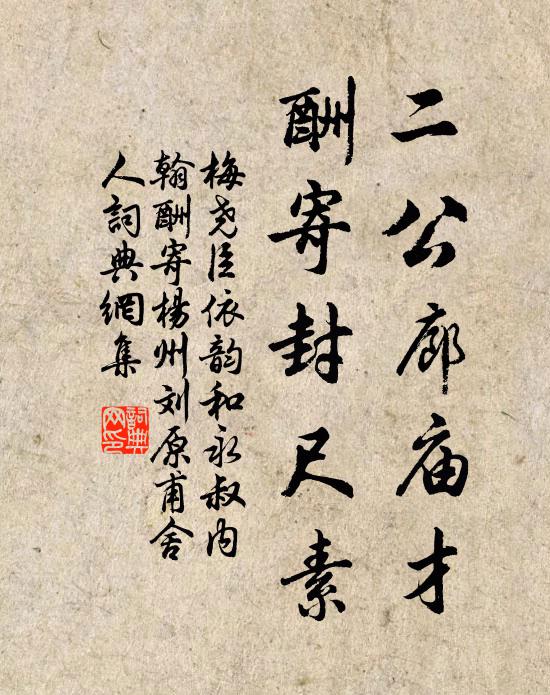 二公廊庙才
酬寄封尺素
梅尧臣依韵和永叔内
翰酬寄楊州刘原甫舍
人詞典網集
詞典
网印